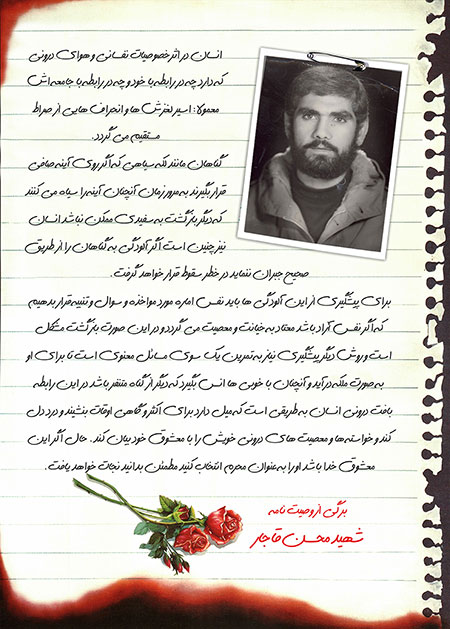 انسان در اثر خصوصیات نفسانی و هوای درونی
که دارد چه در رابطه با خود و چه در رابطه با جامعه اش
معمولا: اسیر لغزش ها و انحراف هایی از صراط
مستقیم می گردد.
گناهان مانند لکه سیاهی که اگر روی آینه صافی
قرار بگیرند به مرور زمان آنچنان آینه را سیاه می کنند
که دیگر بازگشت به سفیدی ممکن نباشد انسان
نیز چنین است اگر آلودگی به گناهان را از طریق
صحیح جبران ننماید در خطر سقوط قرار خواهد گرفت.
برای پیشگیری از این آلودگی ها باید نفس اماره مورد مواخذه و سوال و تنبیه قرار بدهیم
که اگر نفس آزاد باشد معتاد به خیانت و معصیت می گردد و در این صورت بازگشت مشکل
است و روش دیگر پیشگیری نیاز به تمرین یک سوی مسائل معنوی است تا برای او
به صورت ملکه درآید و آنچنان با خوبی ها انس بگیرد که دیگر از گناه متنفر باشد در این رابطه
بافت درونی انسان به طریقی است که میل دارد برای اکثر و گاهی اوقات بنشیند و درد دل
کند و خواسته ها و معصیت های درونی خویش را با معشوق خود بیان کند. حال اگر این
معشوق خدا باشد او را به عنوان محرم انتخاب کنید مطمئن بدانید نجات خواهد یافت.
برگی از وصیت نامه
شهید محسن قاجار